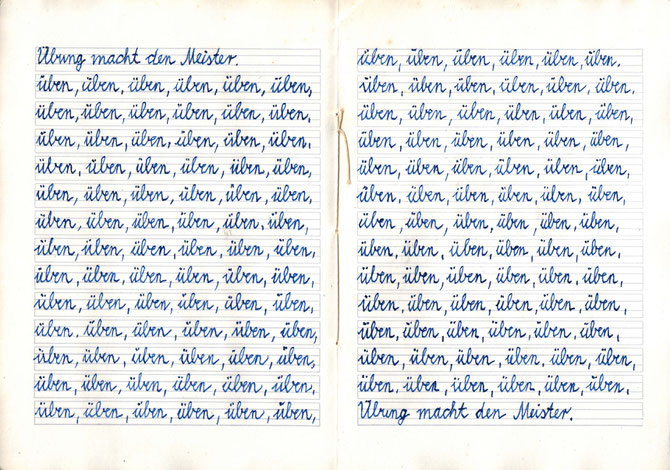 Übung macht den Meister.
üben, üben, üben, üben, üben, üben,
üben, üben, üben, üben, üben, üben,
üben, üben, üben, üben, üben, üben,
üben, üben, üben, üben, üben, üben,
üben, üben, üben, üben, üben, üben,
üben, üben, üben, üben, üben, üben,
üben, üben, üben, üben, üben, üben,
üben, üben, üben, üben, üben, üben,
üben, üben, üben, üben, üben, üben,
üben. üben, üben, üben, üben, üben,
üben, üben, üben, üben, üben, üben,
üben, üben, üben, üben, üben, üben,
üben, üben, üben, üben, üben, üben,
üben, üben, üben, üben, üben, üben.
üben, üben, üben, üben, üben, üben.
üben, üben, üben, üben, üben, üben,
üben, üben, üben, üben, üben, üben,
üben, üben, üben, üben, üben, üben,
üben. üben, üben, üben, üben, üben,
üben, üben, üben, üben, üben, üben,
üben, üben, üben, üben, üben, üben,
üben, üben, üben, üben, üben, üben,
üben, üben, üben, üben, üben, üben,
üben, üben, üben, üben, üben, üben,
üben, üben, üben, üben. üben, üben,
üben, üben, üben, üben, üben, üben,
Übung macht den Meister.